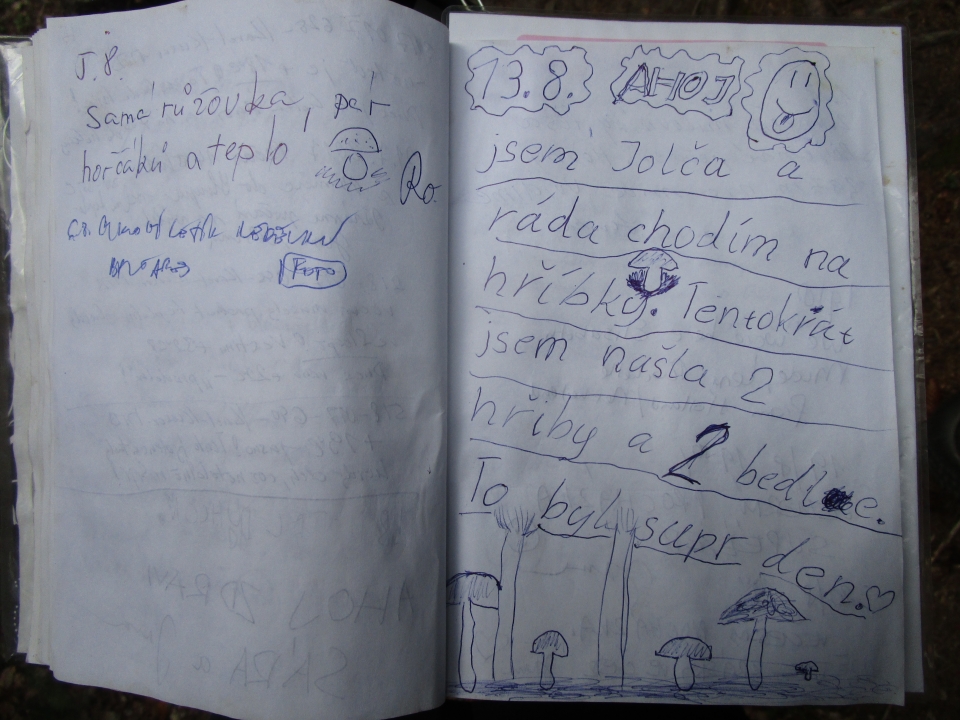 J. 8.
Samá růžovka, pár
horčáků a teplo
Ro.
FOTO
13.8. AHOJ
jsem Jolča a
ráda chodím na
hříbky. Tentokrát
jsem našla 2
hřiby a 2 bedle.
To byl supr den.